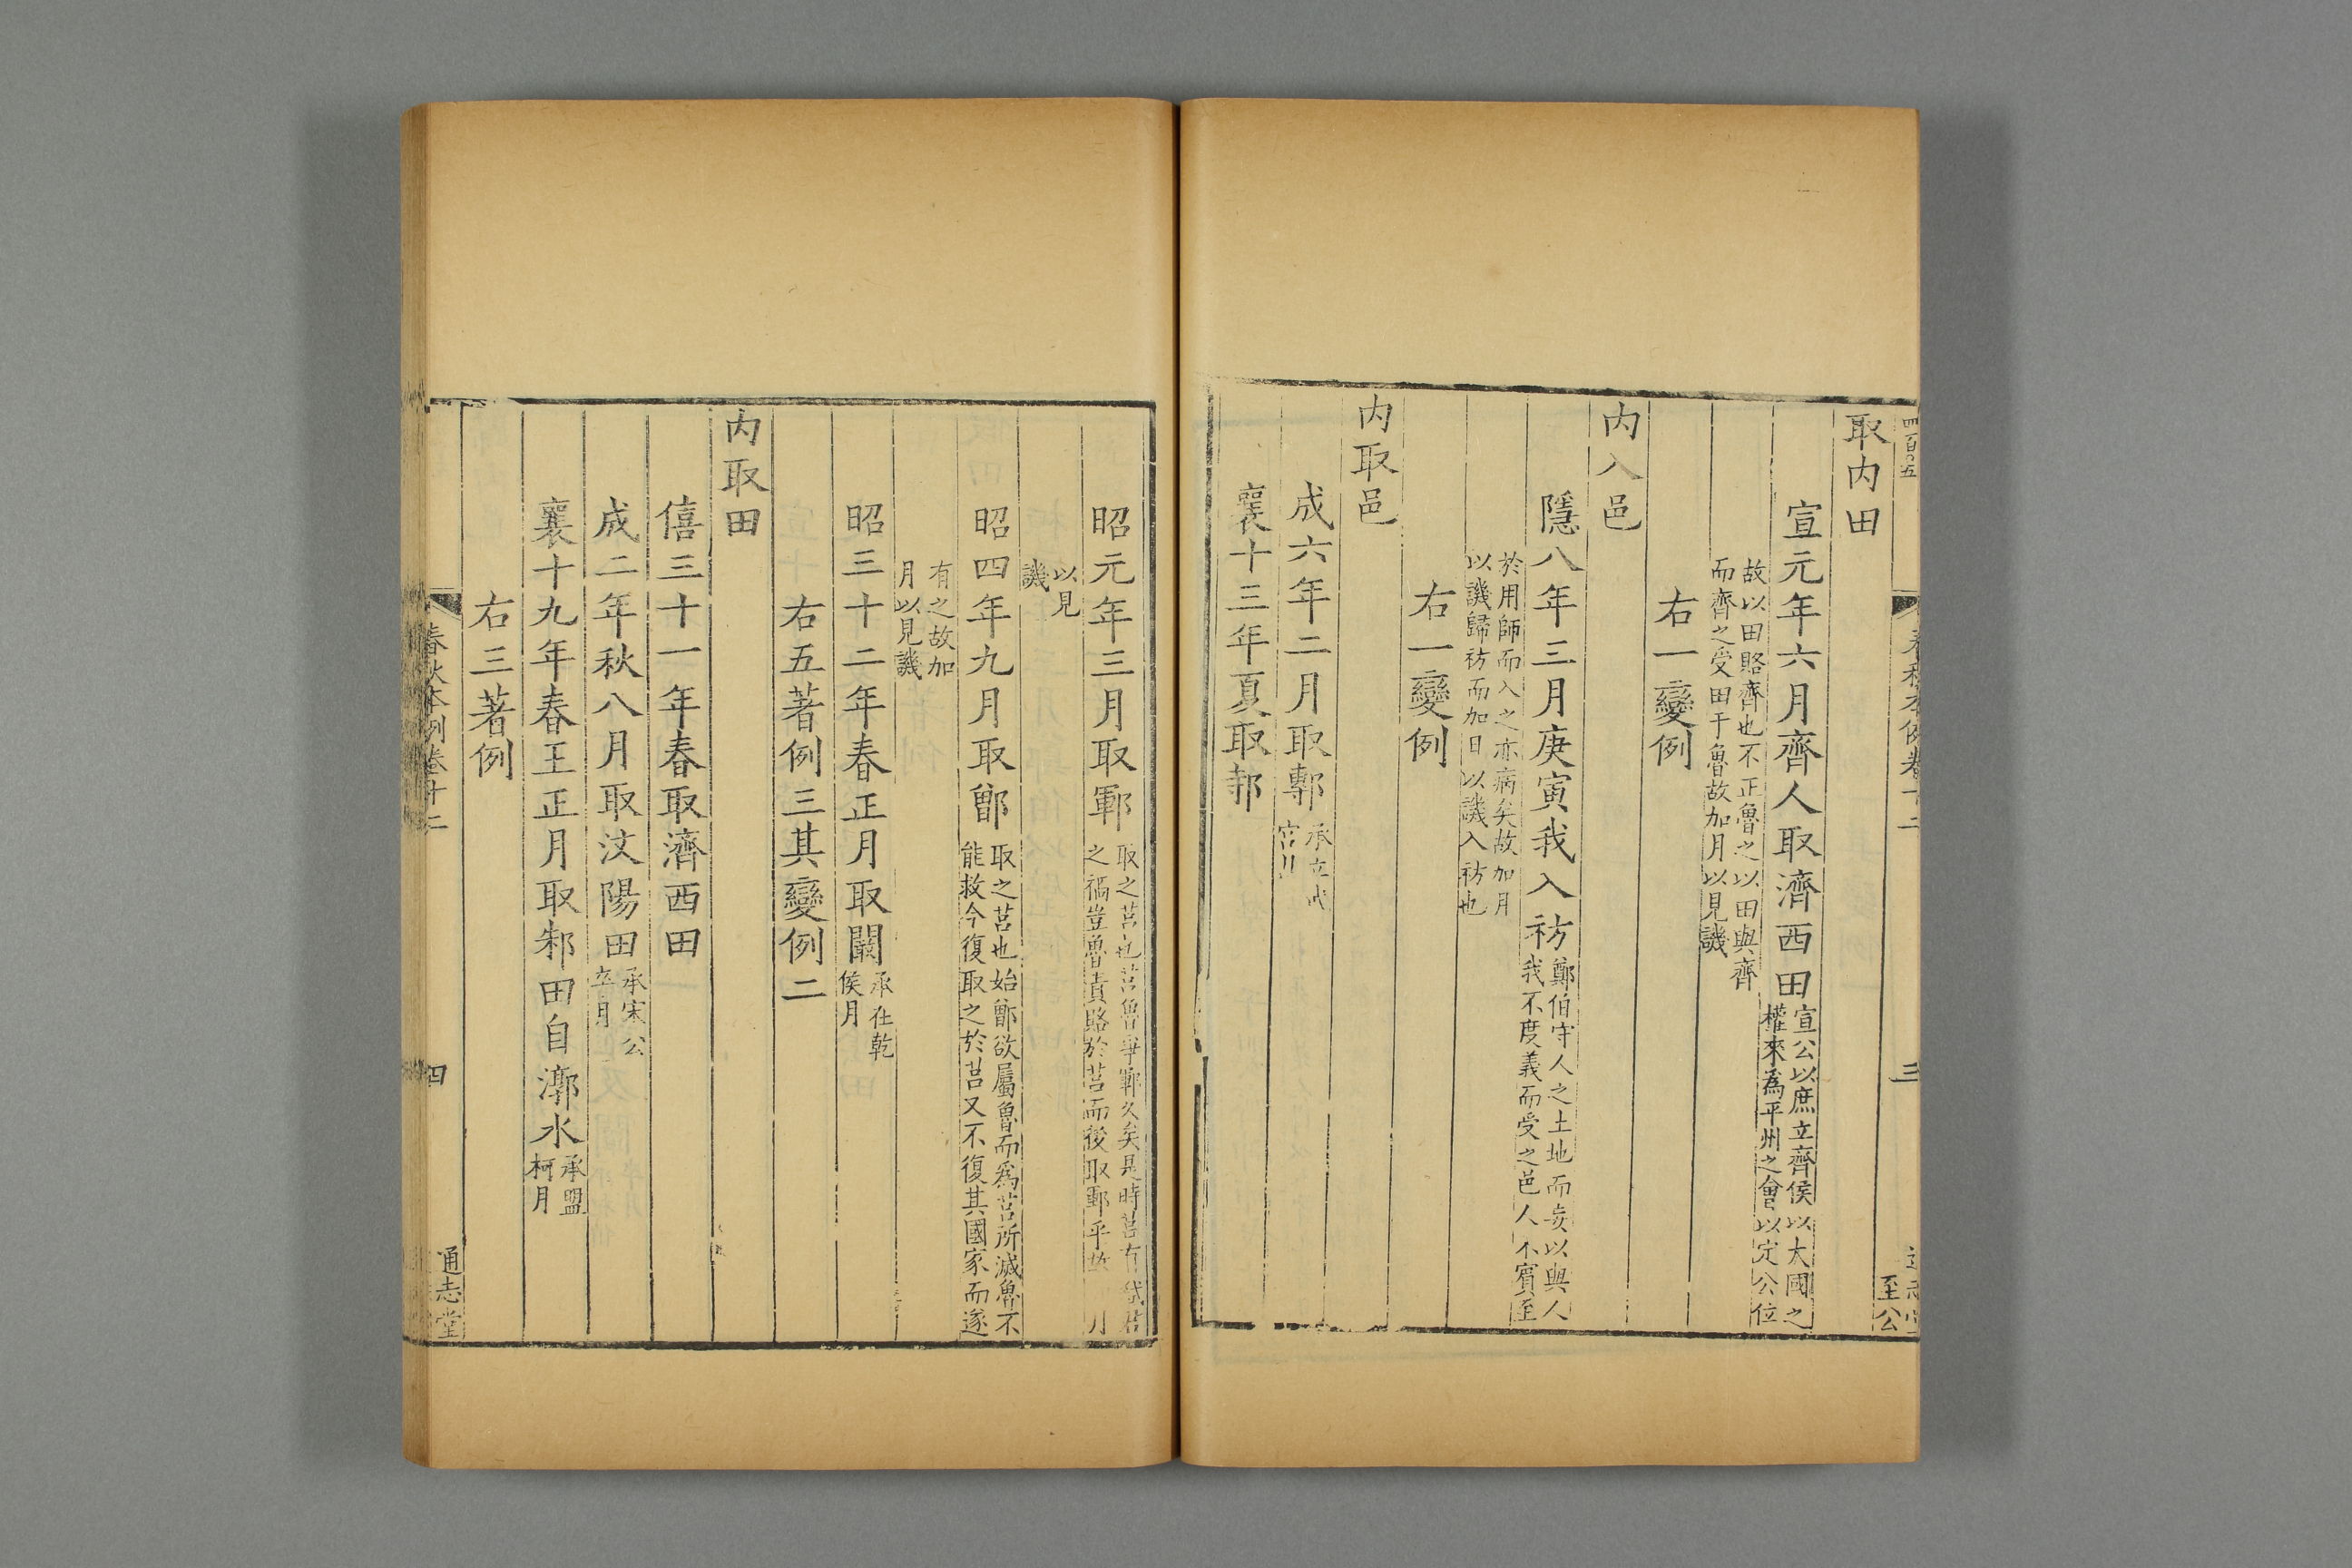 四百〇五
春秋本例卷十二
三
至公
取内田
宣元年六月齊人取濟西田宣公以庶立齊侯以大國之
權來爲平州之會以定公位
故以田賂齊也不正魯之以田與齊
而齊之受田于魯故加月以見譏
右一變例
内入邑
隱八年三月庚寅我入祊鄭伯守人之土地而妄以與人
我不度義而受之邑人不賓至
於用師而入之亦病矣故加月
以譏歸祊而加日以譏入祊也
右一變例
内取邑
成六年二月取鄟承立武
宮
襄十三年夏取邿
昭元年三月取鄆取之莒也莒魯爭鄆久矣是時莒有弑君
之禍豈魯責賂於莒而後取鄆乎故月
以見
譏
昭四年九月取鄫取之莒也始鄫欲屬魯而爲莒所滅魯不
能救今復取之於莒又不復其國家而遂
有之故加
月以見譏
昭三十二年春正月取闞承在乾
侯月
右五著例三其變例二
内取田
僖三十一年春取濟西田
成二年秋八月取汶陽田承宋公
卒月
襄十九年春王正月取邾田自漷水承盟
柯月
右三著例
春秋本例卷十二
四
通志堂